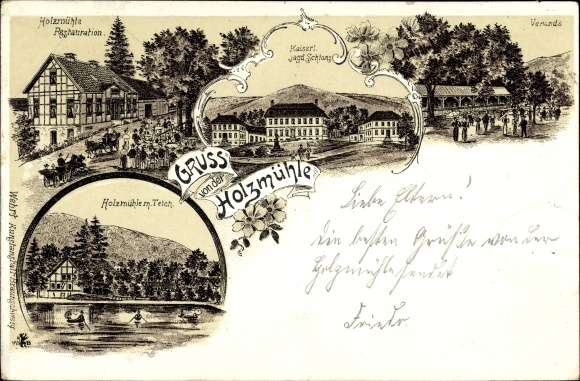 Holzmühle
Restauration.
Kaiserl.
Jagd.Schloss
Veranda
GRUSS
von der
Holzmühle
Holzmühle m. Teich.
Liebe Eltern!
Die besten Grüße von der
Holzmühle sendet
Friedr.